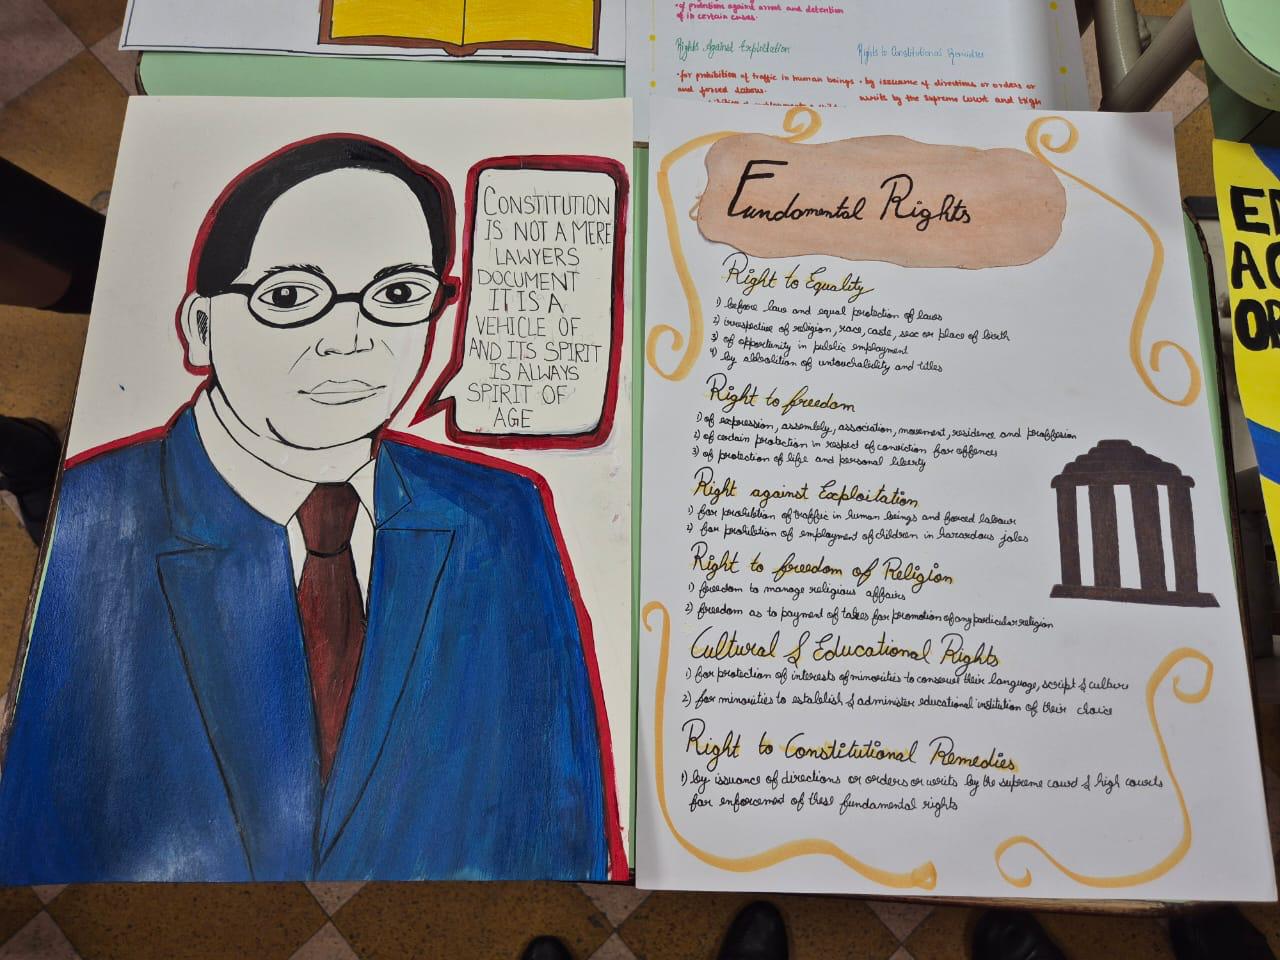 of protection against arrest and detention
of in certain cases.
Rights Against Exploitation
Rights to Constitutional Remedies
• for prohibition of traffic in human beings
and forced labour.
• by issuance of directions or orders or
writs by the Supreme Court and High
CONSTITUTION
IS NOT A MERE
LAWYERS
DOCUMENT
IT IS A
VEHICLE OF
AND ITS SPIRIT
IS ALWAYS
SPIRIT OF
AGE
Fundamental Rights
Right to Equality
1) before law and equal protection of laws
2) irrespective of religion, race, caste, sex or place of birth
3) of opportunity in public employment
4) by abbolition of untouchability and titles
Right to freedom
1) of expression, assembly, association, movement, residence and proffesion
2) of certain protection in respect of conviction for offences
3) of protection of life and personal liberty
Right against Exploitation
1) for prohibition of traffic in human beings and forced labour
2) for prohibition of employment of children in hazardous jobs
Right to freedom of Religion
1) freedom to manage religious affairs
2) freedom as to payment of taxes for promotion of any particular religion
Cultural & Educational Rights
1) for protection of interests of minorities to conserve their language, script & culture
2) for minorities to establish & administer educational institution of their choice
Right to Constitutional Remedies
1) by issuance of directions or orders or writs by the supreme court & high courts
for enforcement of these fundamental rights